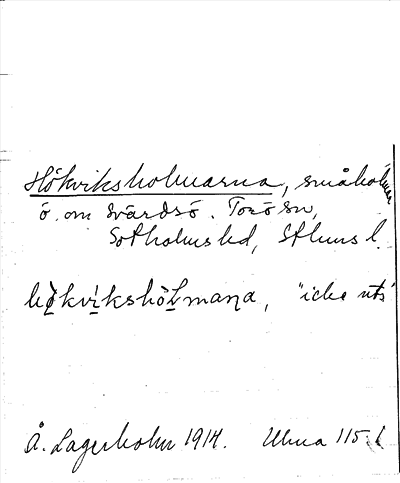 Hökviksholmarna, småholmar
ö. om Svärdsö. Torö sn,
Sotholms hd, Sthms l.
hö̀kvi̱kshòlmaṇa, "icke uts"
Å. Lagerholm 1914. Ulma 115:6